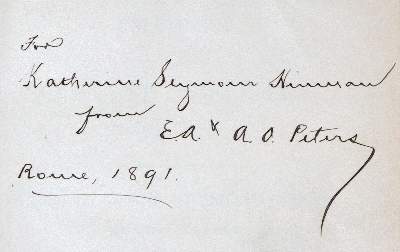 For
Katherine Seymour Hinman
from
E.A. & A.O. Peters
Rome, 1891.